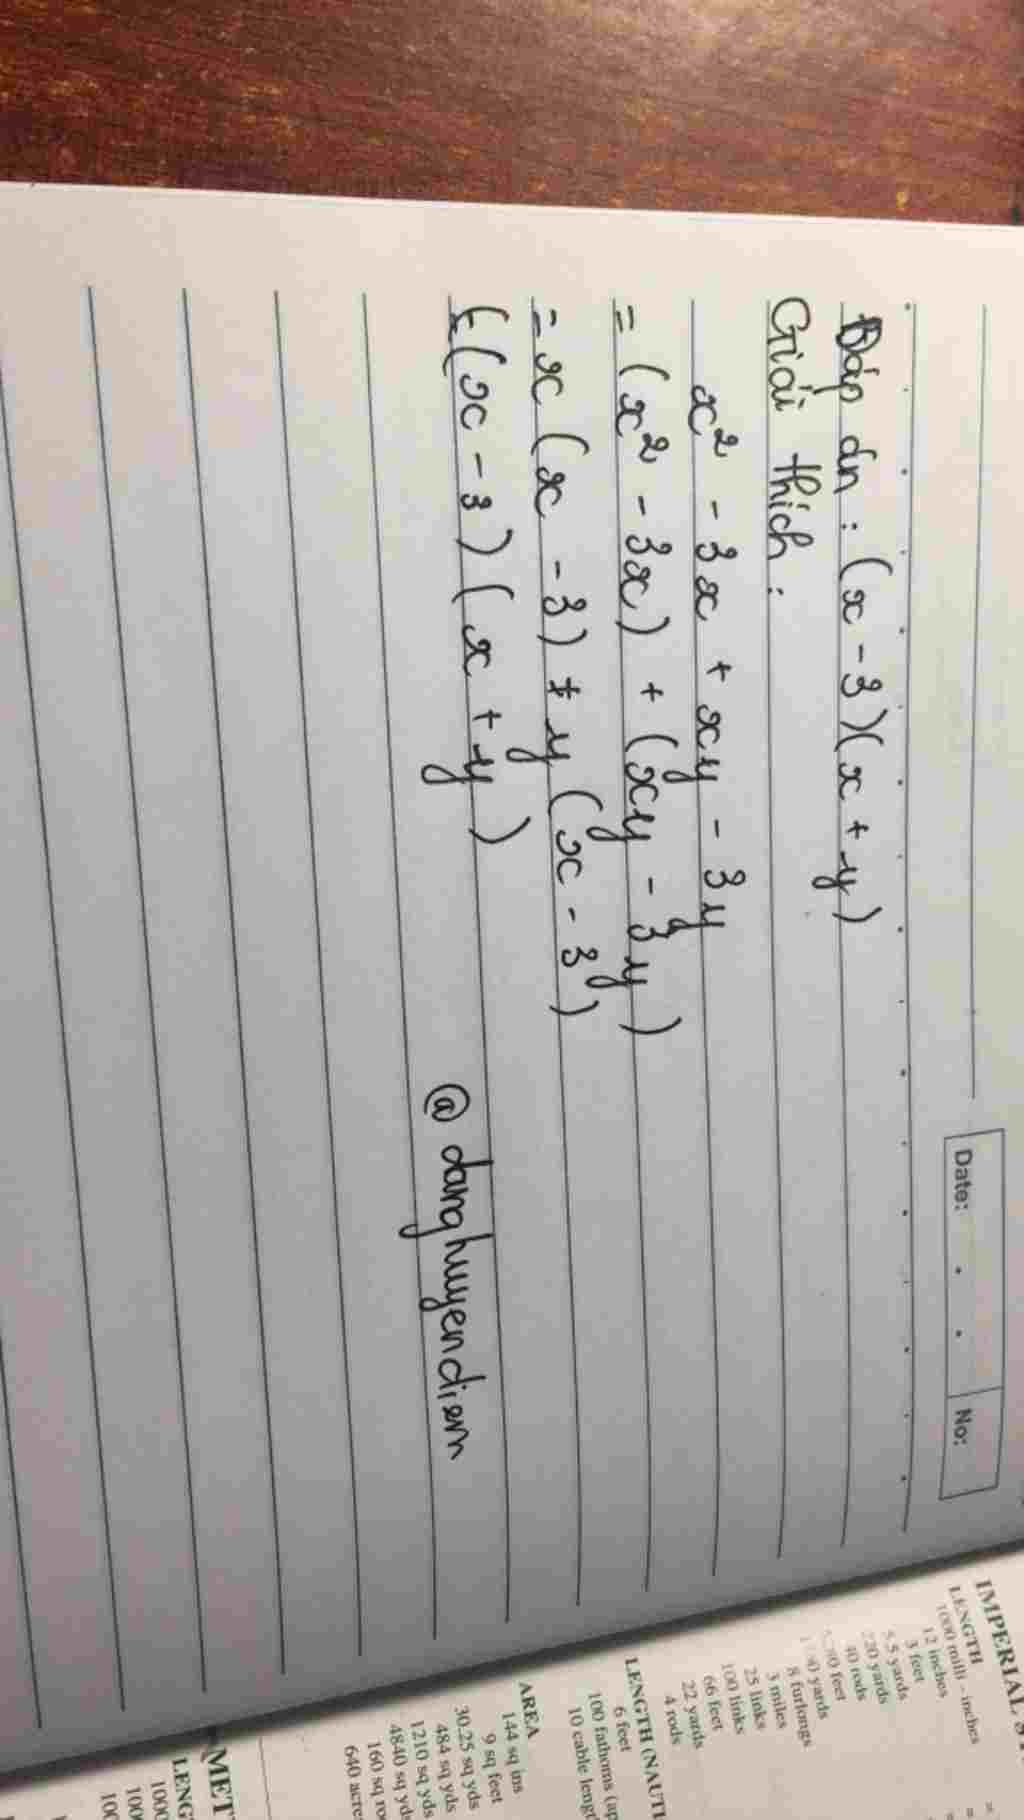 Date:
No:
Đáp án : (x - 3)(x + y)
Giải thích :
x² - 3x + xy - 3y
= (x² - 3x) + (xy - 3y)
= x (x - 3) + y (x - 3)
= (x - 3) (x + y)
@ danghuyendiem
IMPERIAL
LENGTH
1000 milli - inches
12 inches
3 feet
5.5 yards
220 yards
40 rods
8 furlongs
3 miles
25 links
100 links
66 feet
22 yards
4 rods
LENGTH
6 feet
100 fathoms
10 cable
AREA
144 sq ins
9 sq feet
30.25 sq yds
484 sq yds
1210 sq yds
4840 sq yds
160 sq
640